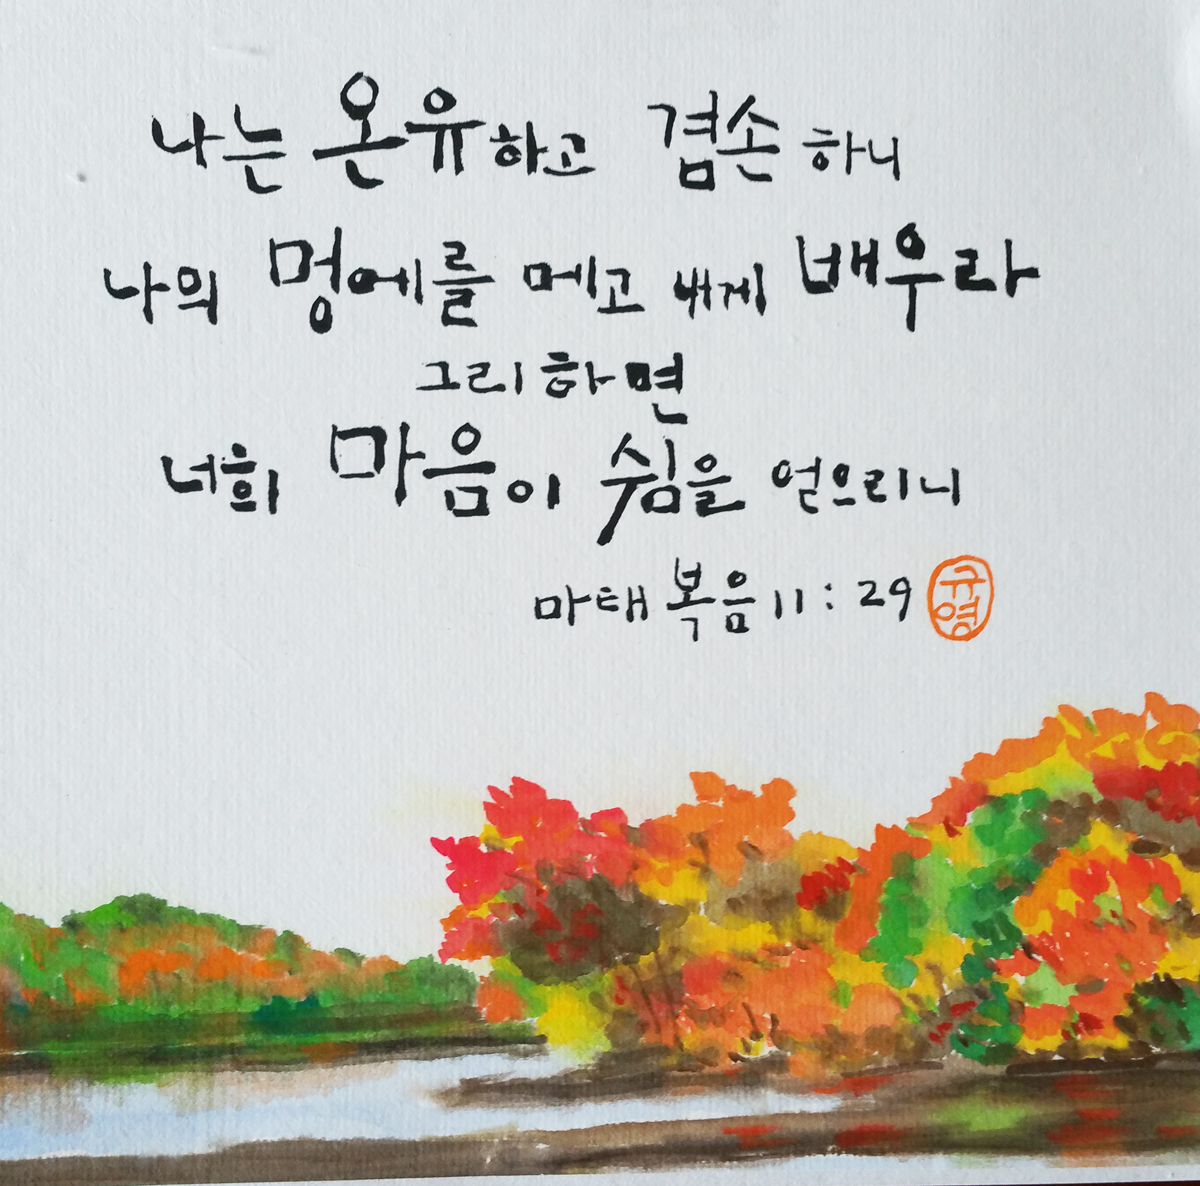 나는 온유하고 겸손하니
나의 멍에를 메고 내게 배우라
그리하면
너희 마음이 쉼을 얻으리니
마태복음 11:29
규영